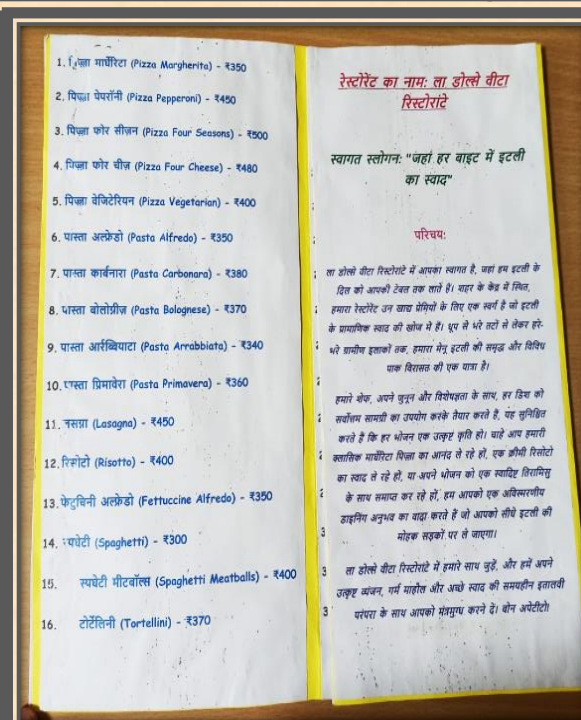 1. पिज़्ज़ा मार्घेरिटा (Pizza Margherita) - ₹350
2. पिज़्ज़ा पेपरॉनी (Pizza Pepperoni) - ₹450
3. पिज़्ज़ा फोर सीज़न (Pizza Four Seasons) - ₹500
4. पिज़्ज़ा फोर चीज़ (Pizza Four Cheese) - ₹480
5. पिज़्ज़ा वेजिटेरियन (Pizza Vegetarian) - ₹400
6. पास्ता अल्फ्रेडो (Pasta Alfredo) - ₹350
7. पास्ता कार्बनारा (Pasta Carbonara) - ₹380
8. पास्ता बोलोग्नीज़ (Pasta Bolognese) - ₹370
9. पास्ता आर्रब्बियाटा (Pasta Arrabbiata) - ₹340
10. पास्ता प्रिमावेरा (Pasta Primavera) - ₹360
11. (Lasagna) - ₹450
12. रिसोटो (Risotto) - ₹400
13. फेटुचिनी अल्फ्रेडो (Fettuccine Alfredo) - ₹350
14. स्पघेटी (Spaghetti) - ₹300
15. स्पघेटी मीटबॉल्स (Spaghetti Meatballs) - ₹400
16. टोर्टेलिनी (Tortellini) - ₹370
रेस्टोरेंट का नाम: ला डोल्से वीटा
रिस्टोरांटे
स्वागत स्लोगन: "जहां हर बाइट में इटली
का स्वाद"
परिचय:
ला डोल्से वीटा रिस्टोरांटे में आपका स्वागत है, जहां हम इटली के
दिल को आपकी टेबल तक लाते हैं। शहर के केंद्र में स्थित,
हमारा रेस्टोरेंट उन खाद्य प्रेमियों के लिए एक स्वर्ग है जो इटली
के प्रामाणिक स्वाद की खोज में हैं। धूप से भरे तटों से लेकर हरे-
भरे ग्रामीण इलाकों तक, हमारा मेनू इटली की समृद्ध और विविध
पाक विरासत की एक यात्रा है।
हमारे शेफ, अपने जुनून और विशेषज्ञता के साथ, हर डिश को
सर्वोत्तम सामग्री का उपयोग करके तैयार करते हैं, यह सुनिश्चित
करते हैं कि हर भोजन एक उत्कृष्ट कृति हो। चाहे आप हमारी
क्लासिक मार्घेरिटा पिज़्ज़ा का आनंद ले रहे हों, एक क्रीमी रिसोटो
का स्वाद ले रहे हों, या अपने भोजन को एक स्वादिष्ट तिरामिसु
के साथ समाप्त कर रहे हों, हम आपको एक अविस्मरणीय
डाइनिंग अनुभव का वादा करते हैं जो आपको सीधे इटली की
मोहक सड़कों पर ले जाएगा।
ला डोल्से वीटा रिस्टोरांटे में हमारे साथ जुड़ें, और हमें अपने
उत्कृष्ट व्यंजन, गर्म माहौल और अच्छे स्वाद की समयहीन इतालवी
परंपरा के साथ आपको मंत्रमुग्ध करने दें। बोन अपेटीटो!